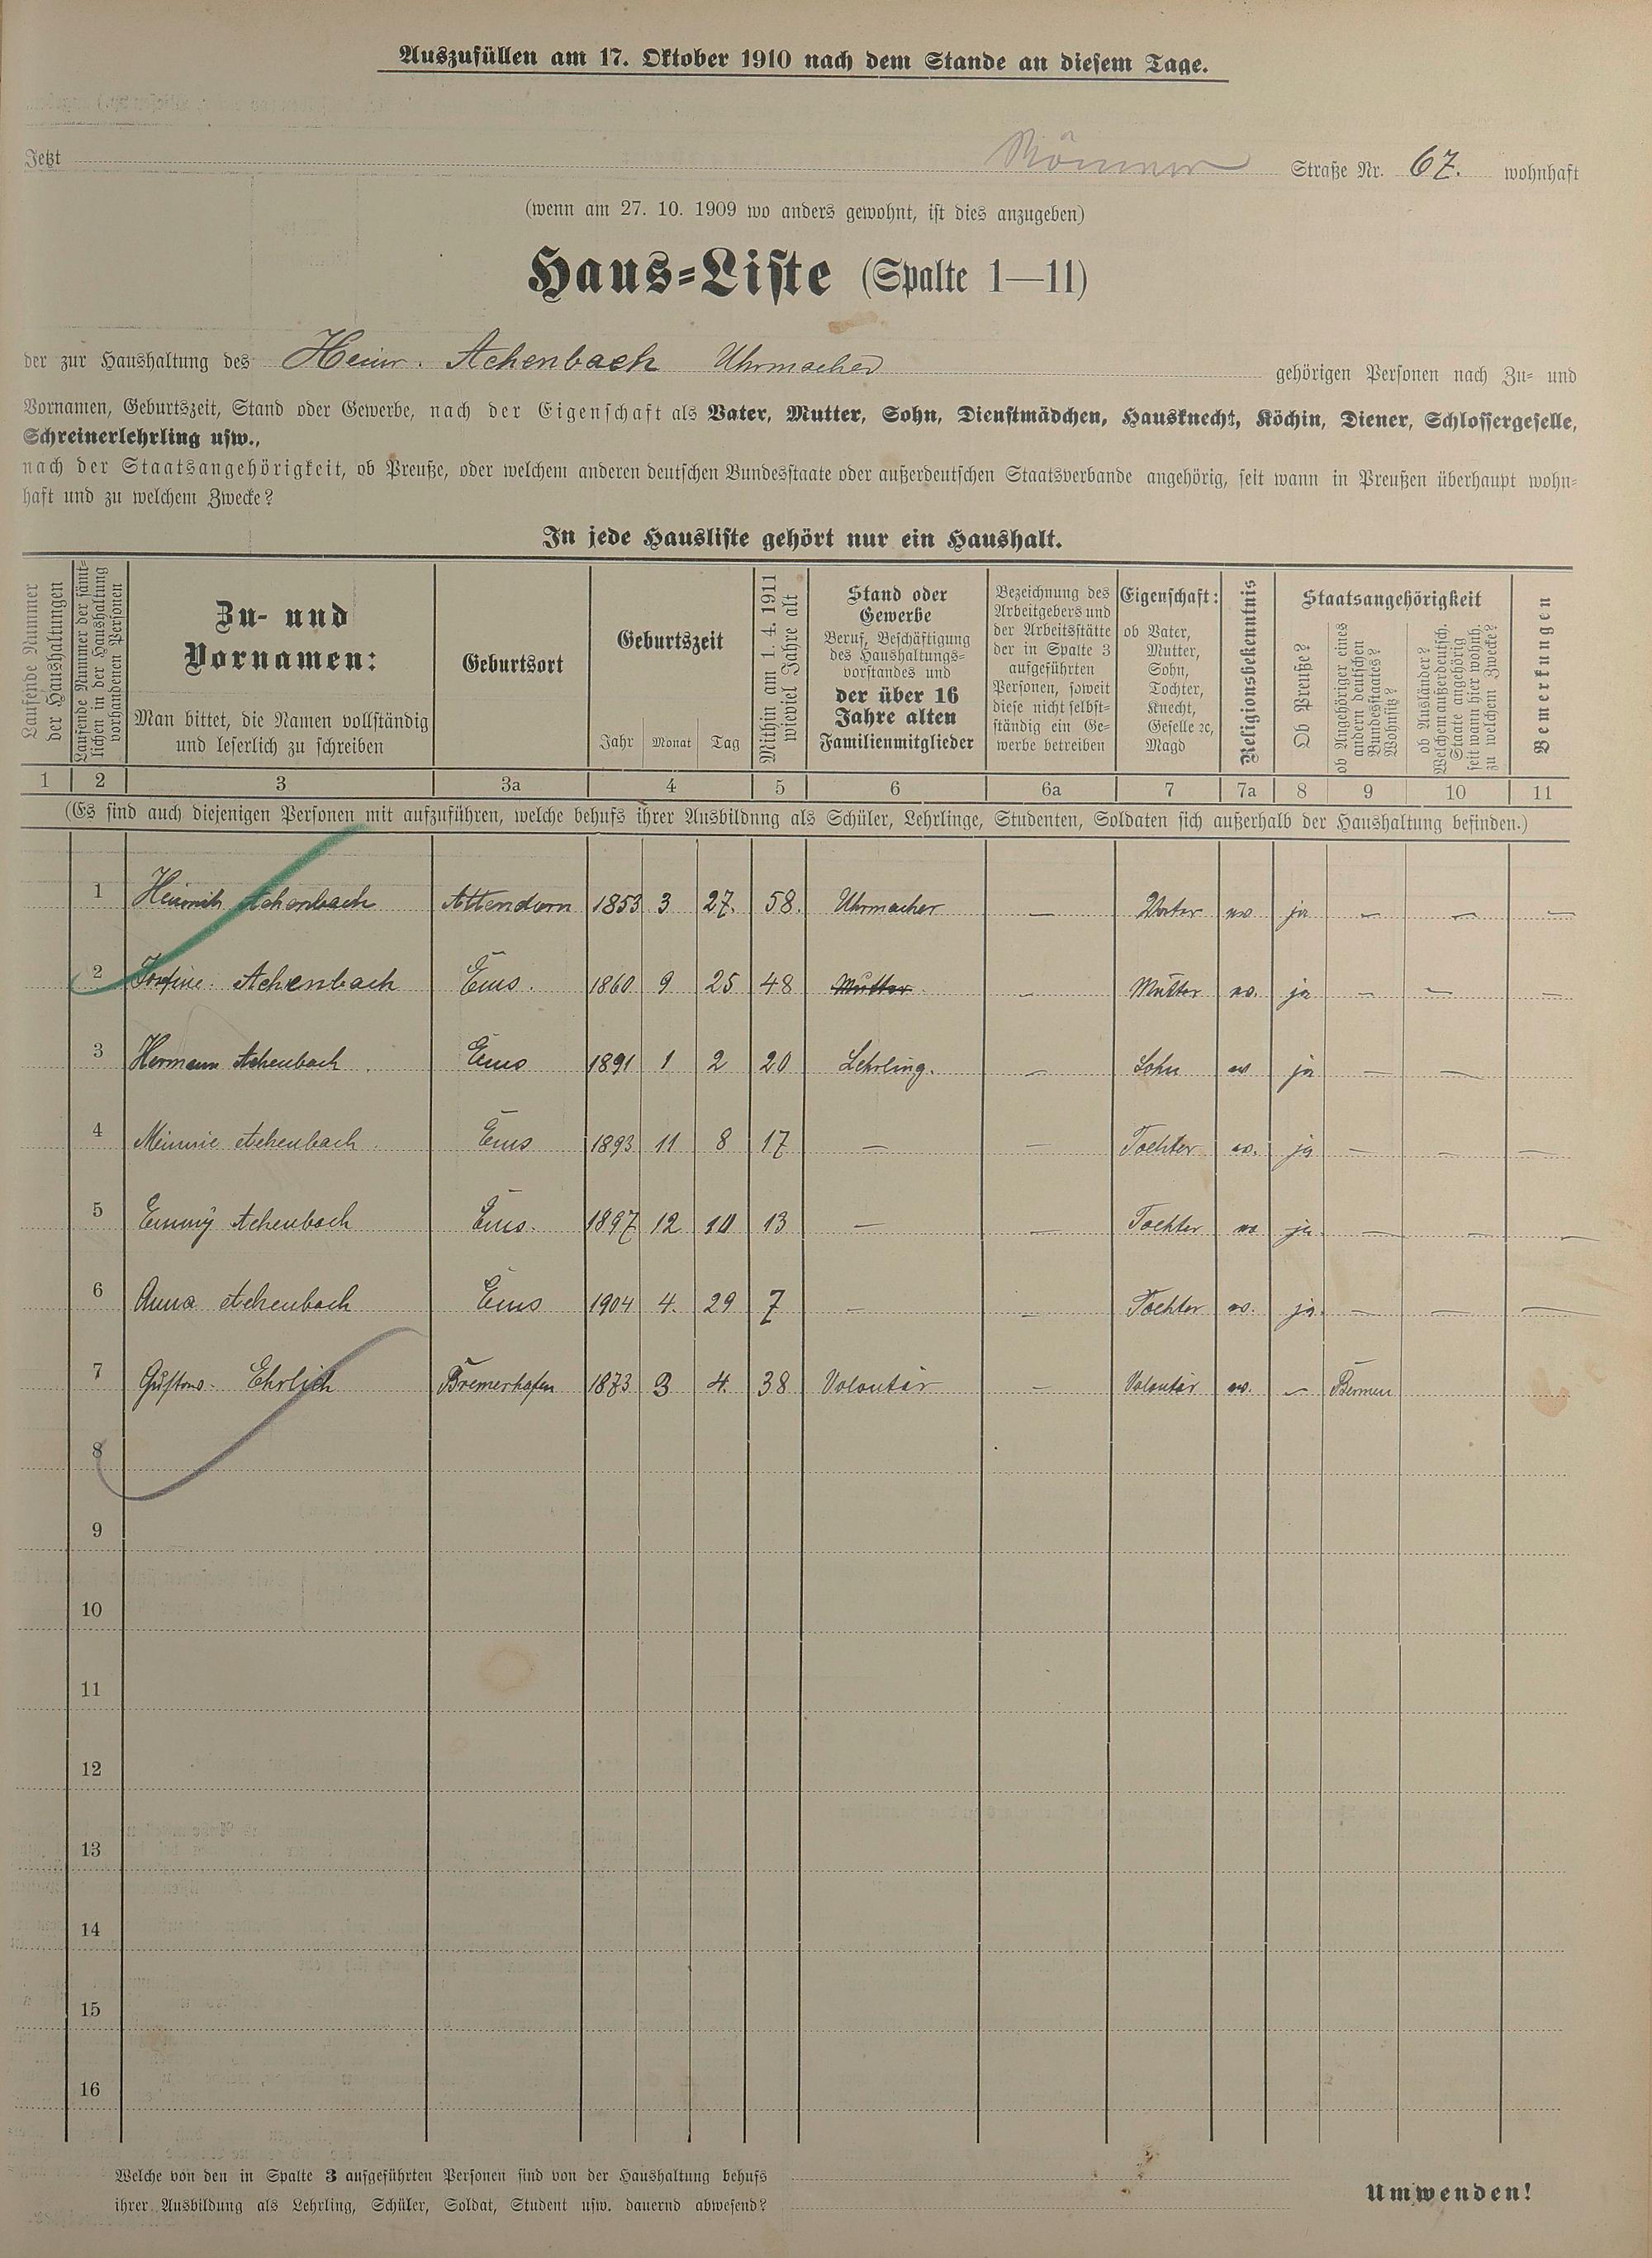 Auszufüllen am 17. Oktober 1910 nach dem Stande an diesem Tage.
Jetzt Römer Straße Nr. 67. wohnhaft
(wenn am 27. 10. 1909 wo anders gewohnt, ist dies anzugeben)
Haus-Liste (Spalte 1—11)
der zur Haushaltung des Heinr. Achenbach Uhrmacher gehörigen Personen nach Zu- und
Vornamen, Geburtszeit, Stand oder Gewerbe, nach der Eigenschaft als Vater, Mutter, Sohn, Dienstmädchen, Hausknecht, Köchin, Diener, Schlossergeselle,
Schreinerlehrling usw.,
nach der Staatsangehörigkeit, ob Preuße, oder welchem anderen deutschen Bundesstaate oder außerdeutschen Staatsverbande angehörig, seit wann in Preußen überhaupt wohn-
haft und zu welchem Zwecke?
In jede Hausliste gehört nur ein Haushalt.
Laufende Nummer
der Haushaltungen
Laufende Nummer der sämt-
lichen in der Haushaltung
vorhandenen Personen
Zu- und
Vornamen:
Man bittet, die Namen vollständig
und leserlich zu schreiben
Geburtsort
Geburtszeit
Jahr Monat Tag
Mithin am 1. 4. 1911
wieviel Jahre alt
Stand oder
Gewerbe
Beruf, Beschäftigung
des Haushaltungs-
vorstandes und
der über 16
Jahre alten
Familienmitglieder
Bezeichnung des
Arbeitgebers und
der Arbeitsstätte
der in Spalte 3
aufgeführten
Personen, soweit
diese nicht selbst-
ständig ein Ge-
werbe betreiben
Eigenschaft:
ob Vater,
Mutter,
Sohn,
Tochter,
Knecht,
Geselle ꝛc,
Magd
Religionsbekenntnis
Staatsangehörigkeit
Ob Preuße?
ob Angehöriger eines
andern deutschen
Bundesstaates?
Wohnsitz?
ob Ausländer?
Welchem außerdeutsch.
Staate angehörig
seit wann hier wohnh.
zu welchem Zwecke?
Bemerkungen
1 2 3 3a 4 5 6 6a 7 7a 8 9 10 11
(Es sind auch diejenigen Personen mit aufzuführen, welche behufs ihrer Ausbildung als Schüler, Lehrlinge, Studenten, Soldaten sich außerhalb der Haushaltung befinden.)
1 Heinrich Achenbach Attendorn 1853 3 27. 58. Uhrmacher — Vater ja — — —
2 Achenbach Ems. 1860 9 25 48 Mutter — Mutter ja — — —
3 Hermann Achenbach Ems 1891 1 2 20 Lehrling. — Sohn ja — —
4 Minnie Achenbach Ems 1893 11 8 17 — — Tochter ja — — —
5 Emmy Achenbach Ems. 1897 12 10 13 — — Tochter ja — — —
6 Anna Achenbach Ems 1904 4. 29 7 — — Tochter ja. — — —
7 Gustav Ehrlich Bremerhafen 1873 3 4. 38 Volontär — Volontär — Bremen
8
9
10
11
12
13
14
15
16
Welche von den in Spalte 3 aufgeführten Personen sind von der Haushaltung behufs
ihrer Ausbildung als Lehrling, Schüler, Soldat, Student usw. dauernd abwesend?
Umwenden!